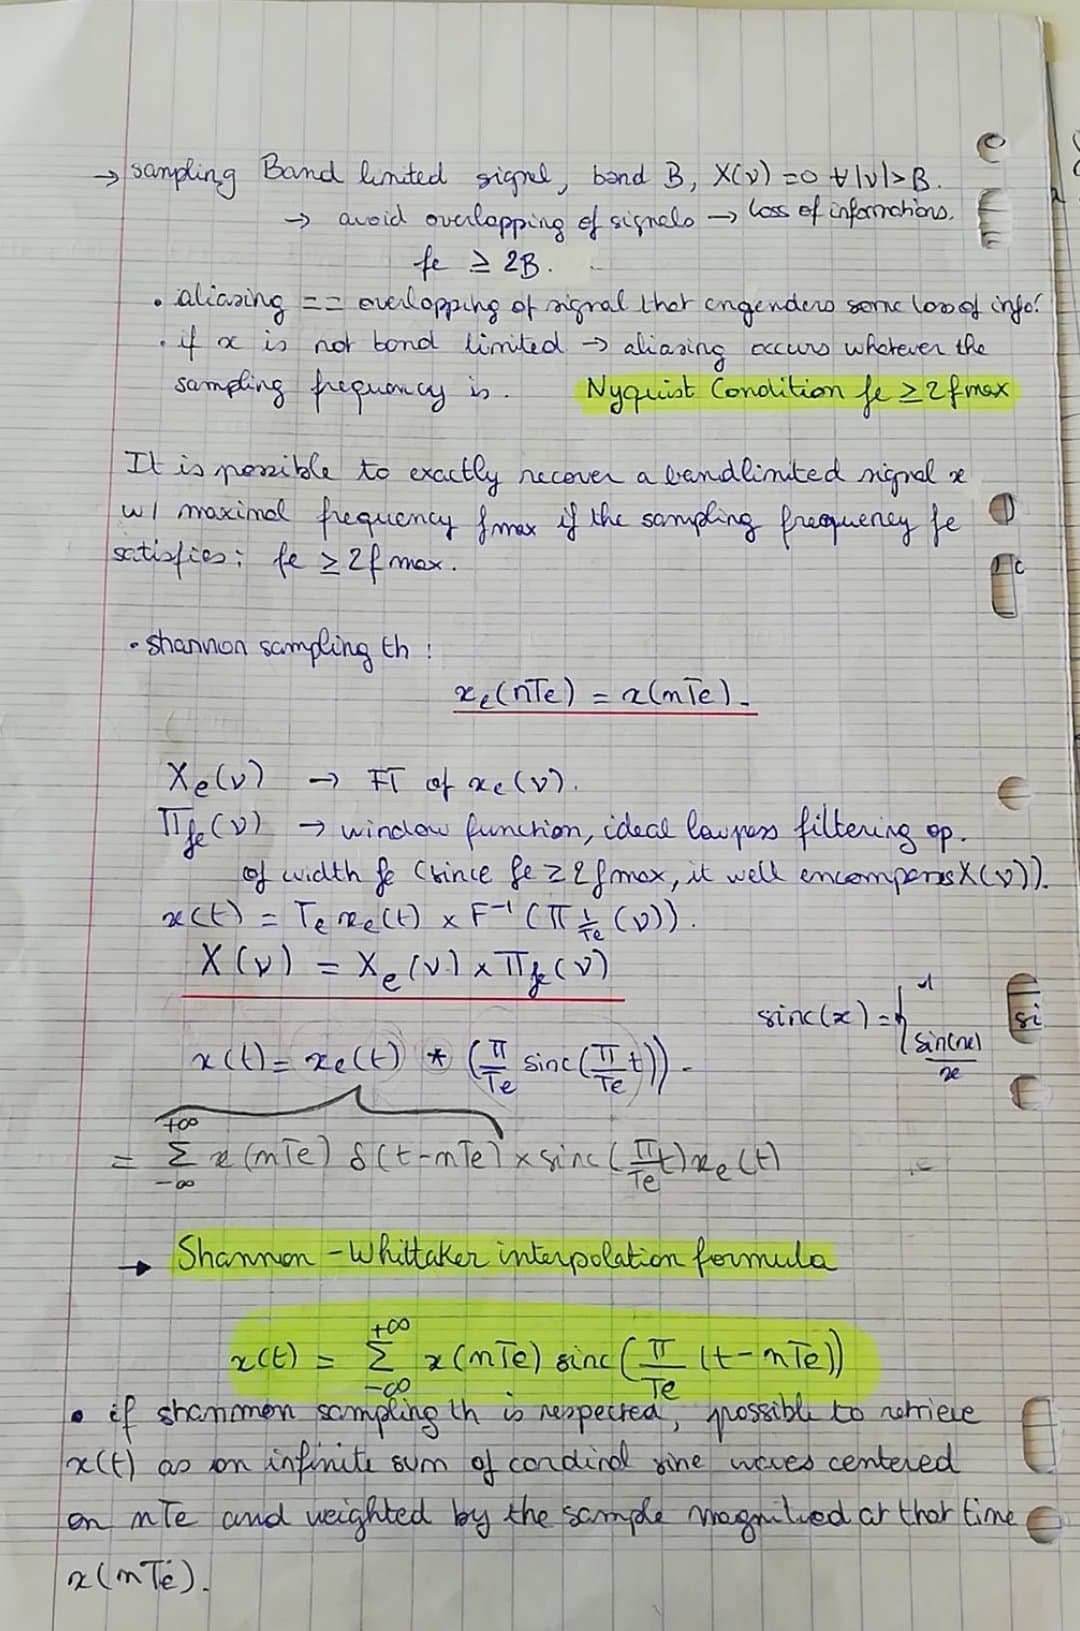 → sampling Band limited signal, band B, X(ν) = 0 ∀|ν|> B.
→ avoid overlapping of signals → loss of informations.
fe ≥ 2B.
• aliasing == overlopping of signal that engenders some loss of info!
• if x is not band limited → aliasing occurs whatever the
sampling frequency is. Nyquist Condition fe ≥ 2fmax
It is possible to exactly recover a bandlimited signal x
w/ maximal frequency fmax if the sampling frequency fe
satisfies: fe ≥ 2fmax.
• shannon sampling th :
xe(nTe) = x(nTe).
Xe(ν) → FT of xe(ν).
Πfe(ν) → window function, ideal lowpass filtering op.
of width fe (since fe ≥ 2fmax, it well encompasses X(ν)).
x(t) = Te xe(t) × F⁻¹(Π 1/Te (ν)).
X(ν) = Xe(ν) × Πfe(ν)
sinc(x) = { 1
sin(x)/x
x(t) = xe(t) * (π/Te sinc(π/Te t)).
= Σ_{-∞}^{+∞} x(nTe) δ(t-nTe) × sinc(π/Te t) xe(t)
→ Shannon-Whittaker interpolation formula
x(t) = Σ_{-∞}^{+∞} x(nTe) sinc(π/Te (t-nTe))
• if shannmon sampling th is respected, possible to retrieve
x(t) as an infinite sum of cardinal sine waves centered
on nTe and weighted by the sample magnitued at that time
x(nTe).